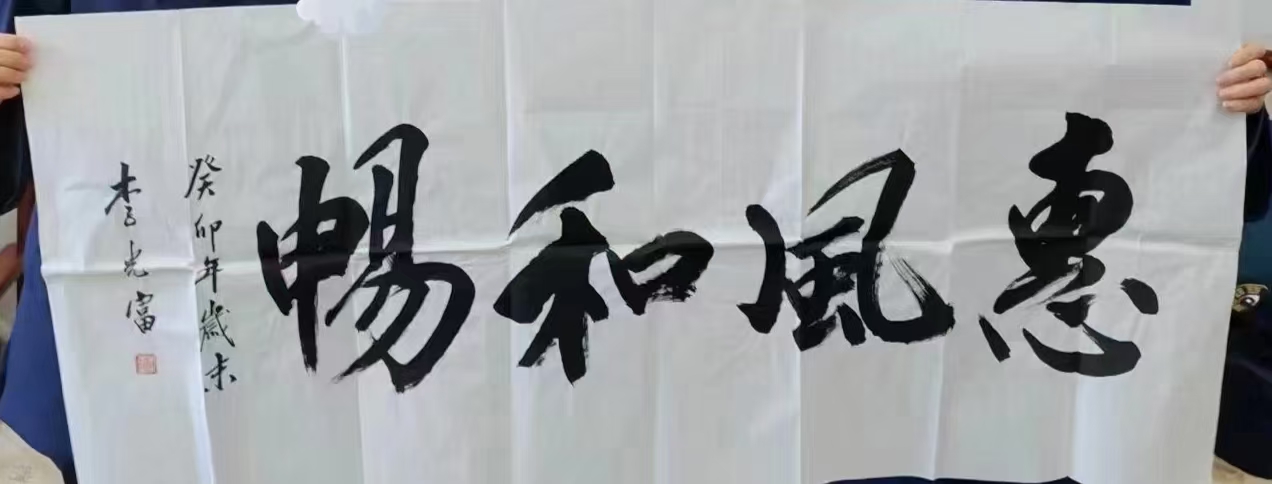 惠風和暢
癸卯年歲末
李光富